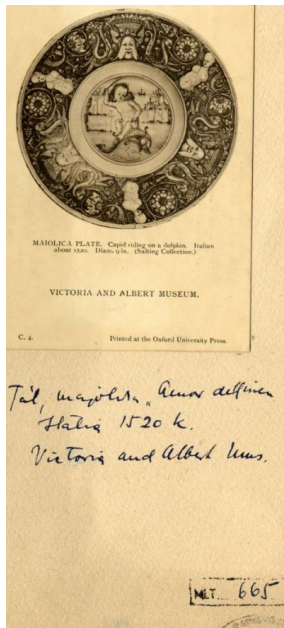 MAIOLICA PLATE. Cupid riding on a dolphin. Italian
about 1520. Diam. 9 in. (Salting Collection.)
VICTORIA AND ALBERT MUSEUM.
C. 4. Printed at the Oxford University Press.
Tál, majolika „Amor delfinen
Itália 1520 k.
Victoria and Albert Mus.
MLT. 665